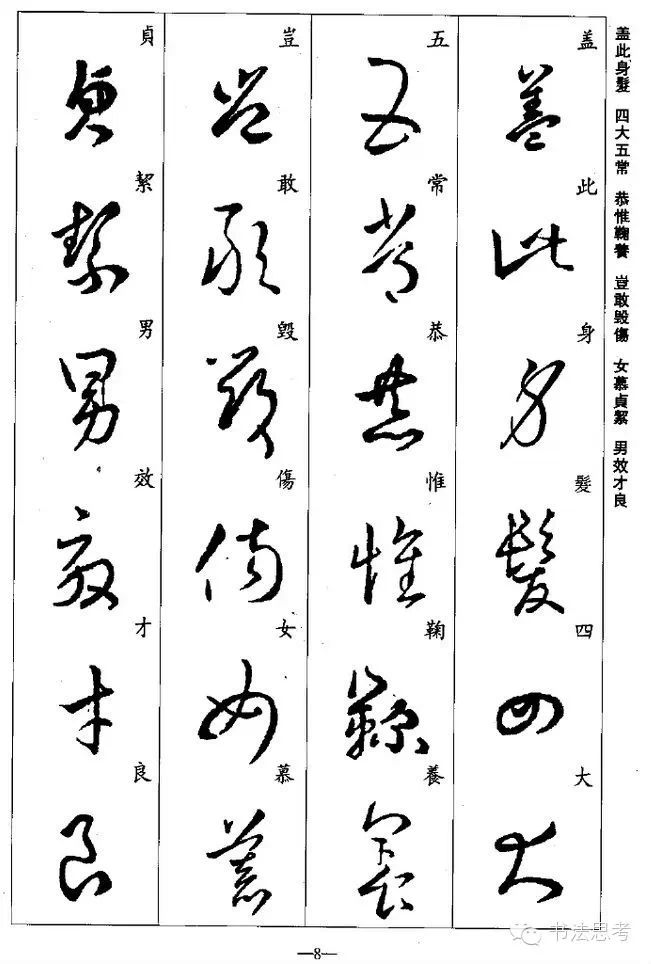 盖此身髮 四大五常 恭惟鞠養 豈敢毀傷 女慕貞絜 男效才良
盖此身髮四大
五常恭惟鞠養
豈敢毀傷女慕
貞絜男效才良
—8—
书法思考